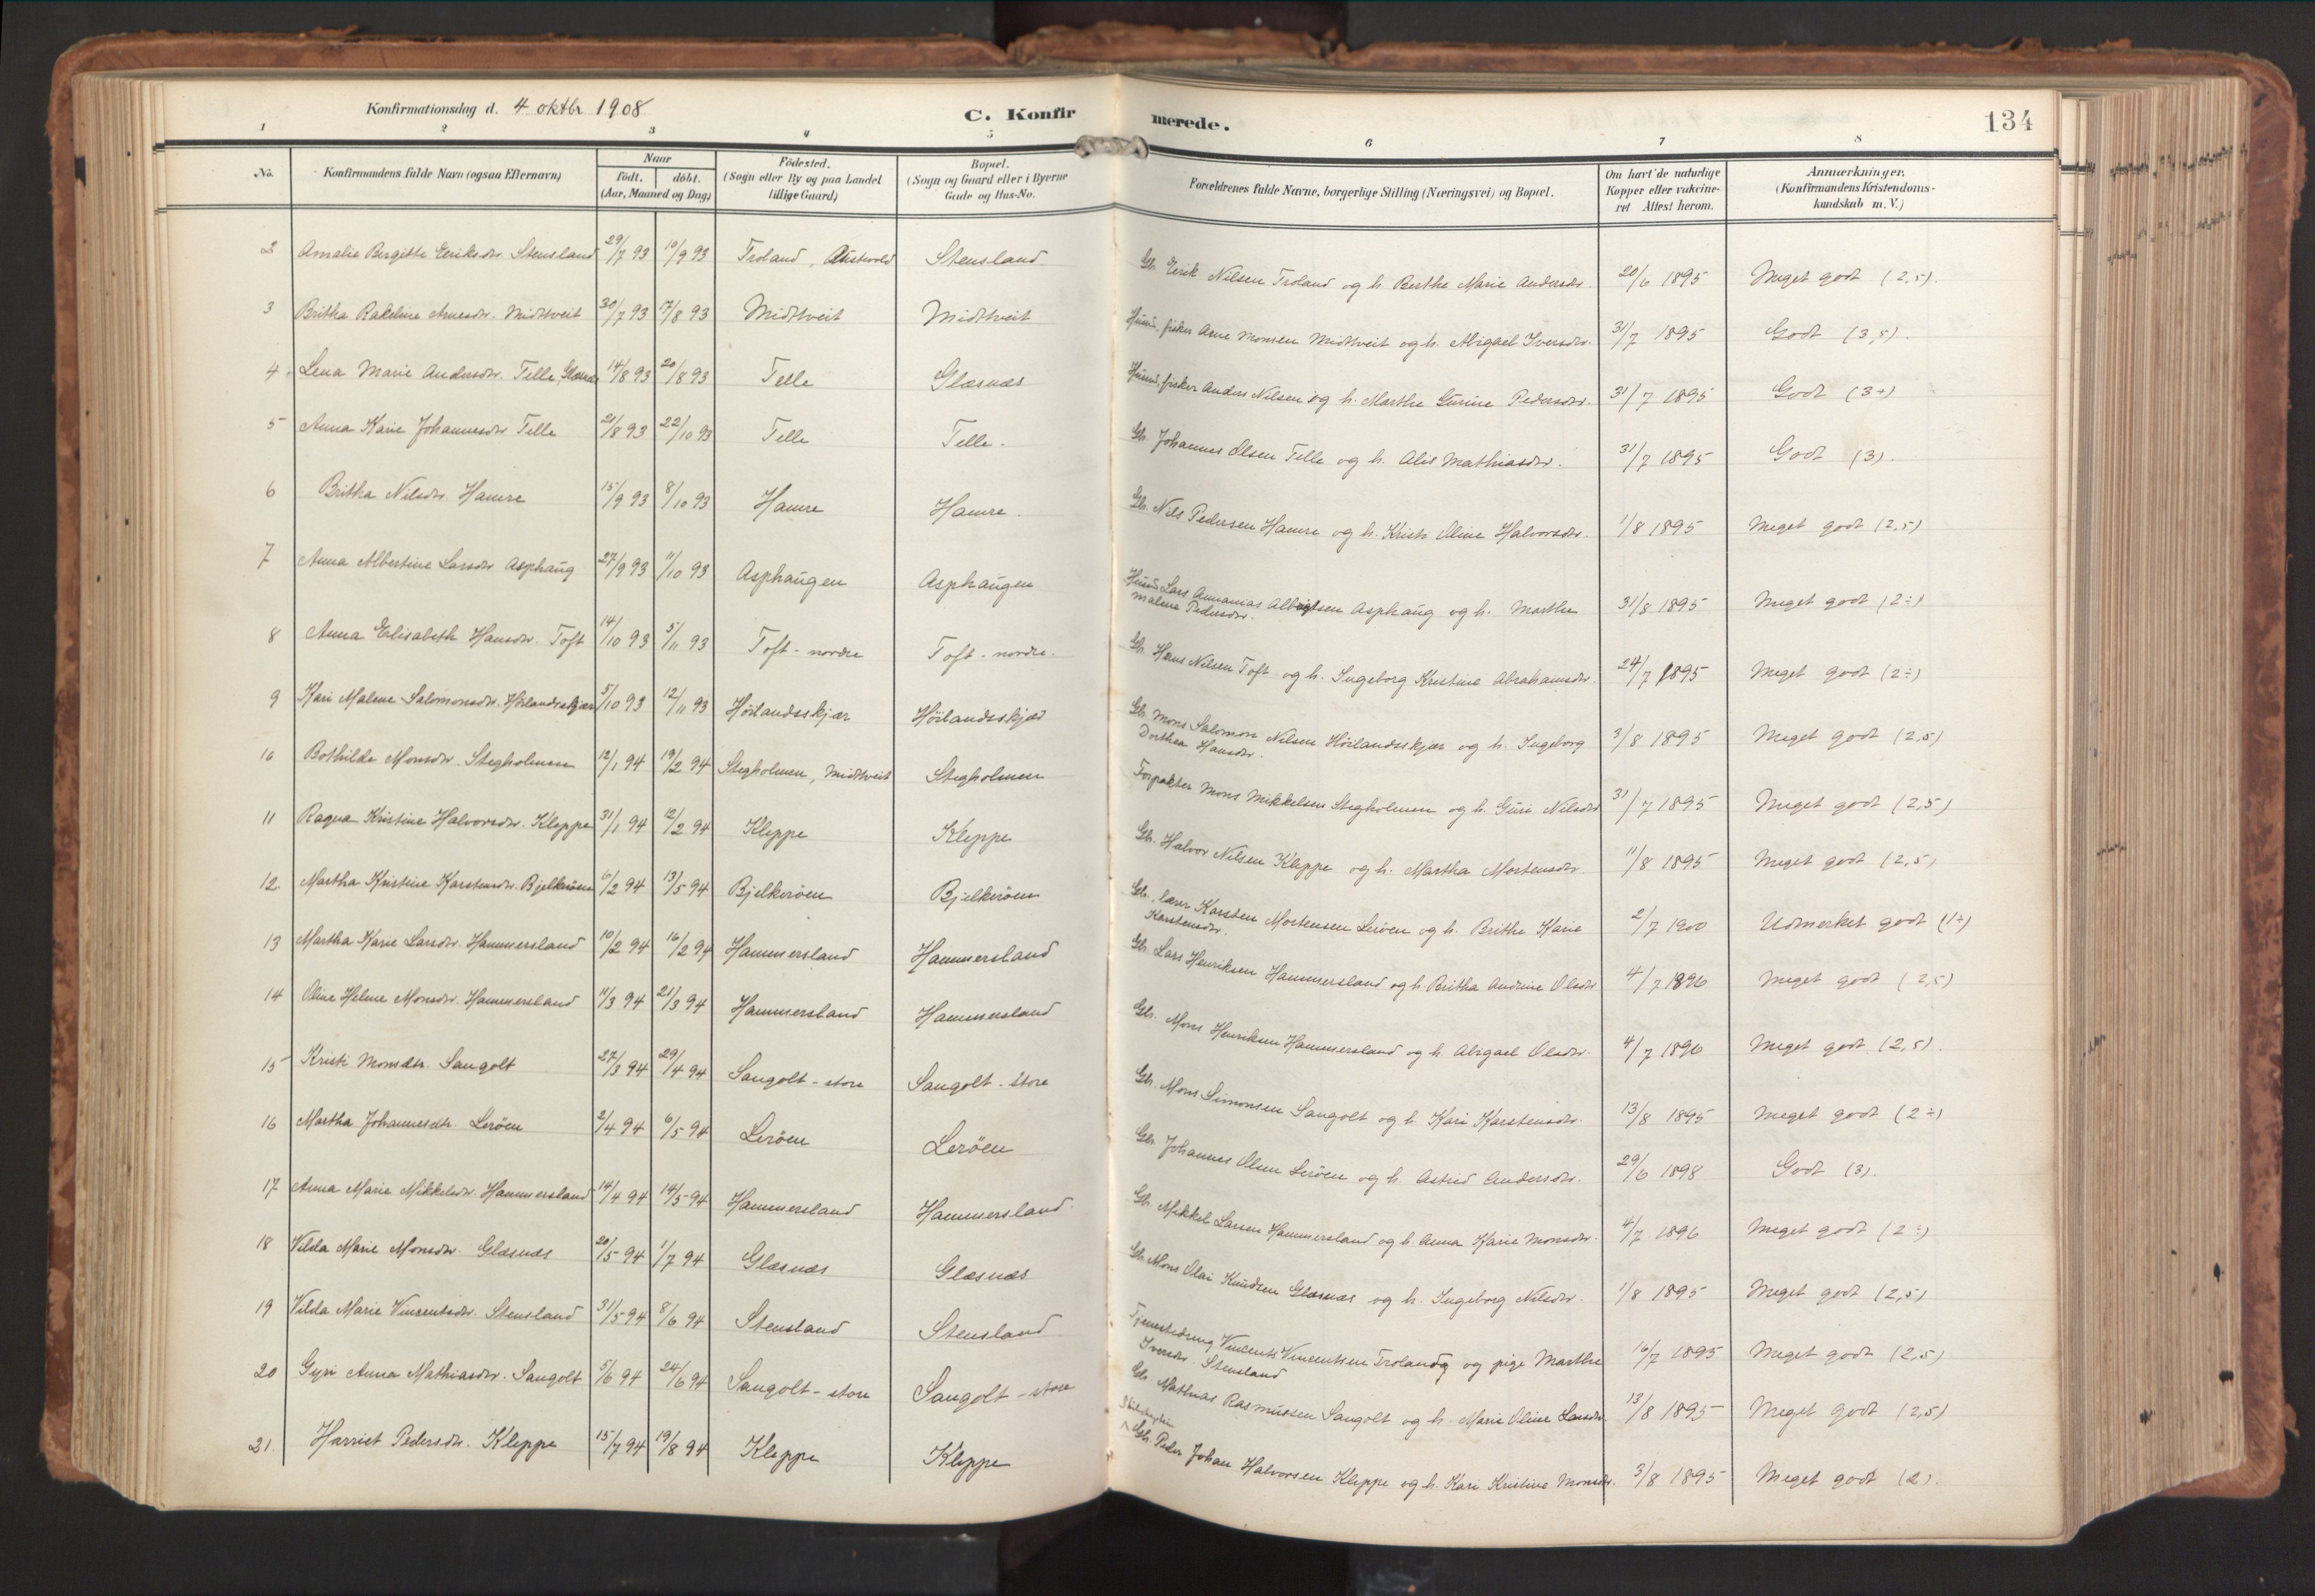 Konfirmationsdag d. 4 oktbr 1908 C. Konfirmerede. 134
1 2 3 4 5 6 7 8
No. Konfirmandens fulde Navn (ogsaa Efternavn) Naar födt. döbt. (Aar, Maaned og Dag) Födested. (Sogn eller By og paa Landet tillige Gaard) Bopæl. (Sogn og Gaard eller i Byerne Gade og Hus-No. Forældrenes fulde Navne, borgerlige Stilling (Næringsvei) og Bopæl. Om havt de naturlige Kopper eller vakcineret Attest herom. Anmærkninger. (Konfirmandens Kristendomskundskab m. V.)
2 Amalie Bergitte Eeriksdtr. Stensland 29/7 93 10/9 93 Troland, Austevold Stensland. Gbr. Eerik Nilsen Troland og h. Berthe Marie Andersdtr. 20/6 1895 Meget godt (2,5).
3 Britha Rakeline Arnesdtr. Midttveit 30/7 93 17/8 93 Midttveit Midttveit Husm., fisker Arne Monsen Midttveit og h. Abigael Iversdtr. 31/7 1895 Godt (3,5).
4 Lena Marie Andersdtr. Telle, Glæsnæs 14/8 93 20/8 93 Telle Glæsnæs Husm., fisker Anders Nilsen og h. Marthe Gurine Pedersdtr. 31/7 1895 Godt (3+)
5 Anna Karie Johannesdtr Telle 21/8 93 22/10 93 Telle Telle. Gbr. Johannes Olsen Telle og h. Alis Mathiasdtr. 31/7 1895 Godt (3).
6 Britha Nilsdtr. Hamre 15/9 93 8/10 93 Hamre Hamre. Gbr. Nils Pedersen Hamre og h. Kristi Oline Halvorsdtr. 1/8 1895 Meget godt (2,5)
7 Anna Albertine Larsdtr Asphaug 27/9 93 11/10 93 Asphaugen Asphaugen Husm. Lars Annanias Albrigtsen Asphaug og h. Marthe
Malene Pedersdtr. 31/8 1895 Meget godt (2÷)
8 Anna Elisabeth Hansdtr. Toft 14/10 93 5/11 93 Toft - nordre Toft - nordre. Gbr. Hans Nilsen Toft og h. Ingeborg Kristine Abrahamsdtr. 24/7 1895 Meget godt (2÷)
9 Kari Malene Salomonsdtr. Höilandsskjær 5/10 93 12/11 93 Höilandsskjær Höilandsskjær Gbr. Mons Salomon Nilsen Höilandsskjær og h. Ingeborg
Dorthea Hansdtr. 3/8 1895 Meget godt (2,5)
10 Bothilde Monsdtr. Stegholmen 12/1 94 19/2 94 Stegholmen, Midttveit Stegholmen Forpakter Mons Mikkelsen Stegholmen og h. Guri Nilsdtr 31/7 1895 Meget godt (2,5)
11 Ragna Kristine Halvorsdtr. Kleppe 31/1 94 12/2 94 Kleppe Kleppe Gbr. Halvor Nilsen Kleppe og h. Martha Mortensdtr. 11/8 1895 Meget godt (2,5)
12. Martha Kristine Karstensdtr. Bjelkeröen 6/2 94 13/5 94 Bjelkeröen Bjelkeröen Gbr., lærer Karsten Mortensen Leröen og h. Brithe Karie
Karstensdtr. 2/7 1900 Udmerket godt (1÷)
13 Martha Karie Larsdtr. Hammersland 10/2 94 16/2 94 Hammersland Hammersland Gbr. Lars Henriksen Hammersland og h. Britha Andrine Olsdtr 4/7 1896 Meget godt (2,5)
14 Oline Helene Monsdtr. Hammersland 11/3 94 21/3 94 Hammersland Hammersland Gbr. Mons Henriksen Hammersland og h. Abigael Olsdtr. 4/7 1896 Meget godt (2,5).
15 Kristi Monsdtr. Sangolt 27/3 94 29/4 94 Sangolt - store Sangolt - store Gbr. Mons Simonsen Sangolt og h. Kari Karstensdtr. 13/8 1895 Meget godt (2÷)
16 Martha Johannesdtr. Leröen 2/4 94 6/5 94 Leröen Leröen Gbr. Johannes Olsen Leröen og h. Astrid Andersdtr. 29/6 1898 Godt (3).
17 Anna Marie Mikkelsdtr. Hammersland 14/4 94 14/5 94 Hammersland Hammersland. Gbr. Mikkel Larsen Hammersland og h. Anna Karie Monsdtr. 4/7 1896 Meget godt (2÷)
18 Vilda Marie Monsdtr. Glæsnæs 20/5 94 1/7 94 Glæsnæs Glæsnæs Gbr. Mons Olai Knudsen Glæsnæs og h. Ingeborg Nilsdtr. 1/8 1895 Meget godt (2,5)
19 Vilda Marie Vincentsdtr. Stensland 31/5 94 8/6 94 Stensland Stensland Tjenestedreng Vincents Vincentsen Troland og pige Marthe
Iversdtr. Stensland 16/7 1895 Meget godt (2,5)
20 Gyri Anna Mathiasdtr. Sangolt 5/6 94 24/6 94 Sangolt - store Sangolt - store Gbr. Mathias Rasmussen Sangolt og h. Marie Oline Larsdtr. 13/8 1895 Meget godt (2,5)
21. Harriet Pedersdtr. Kleppe 15/7 94 19/8 94 Kleppe Kleppe Gbr. Peder Johan Halvorsen Kleppe og h. Kari Kristine Monsdtr. 3/8 1895 Meget godt (2).